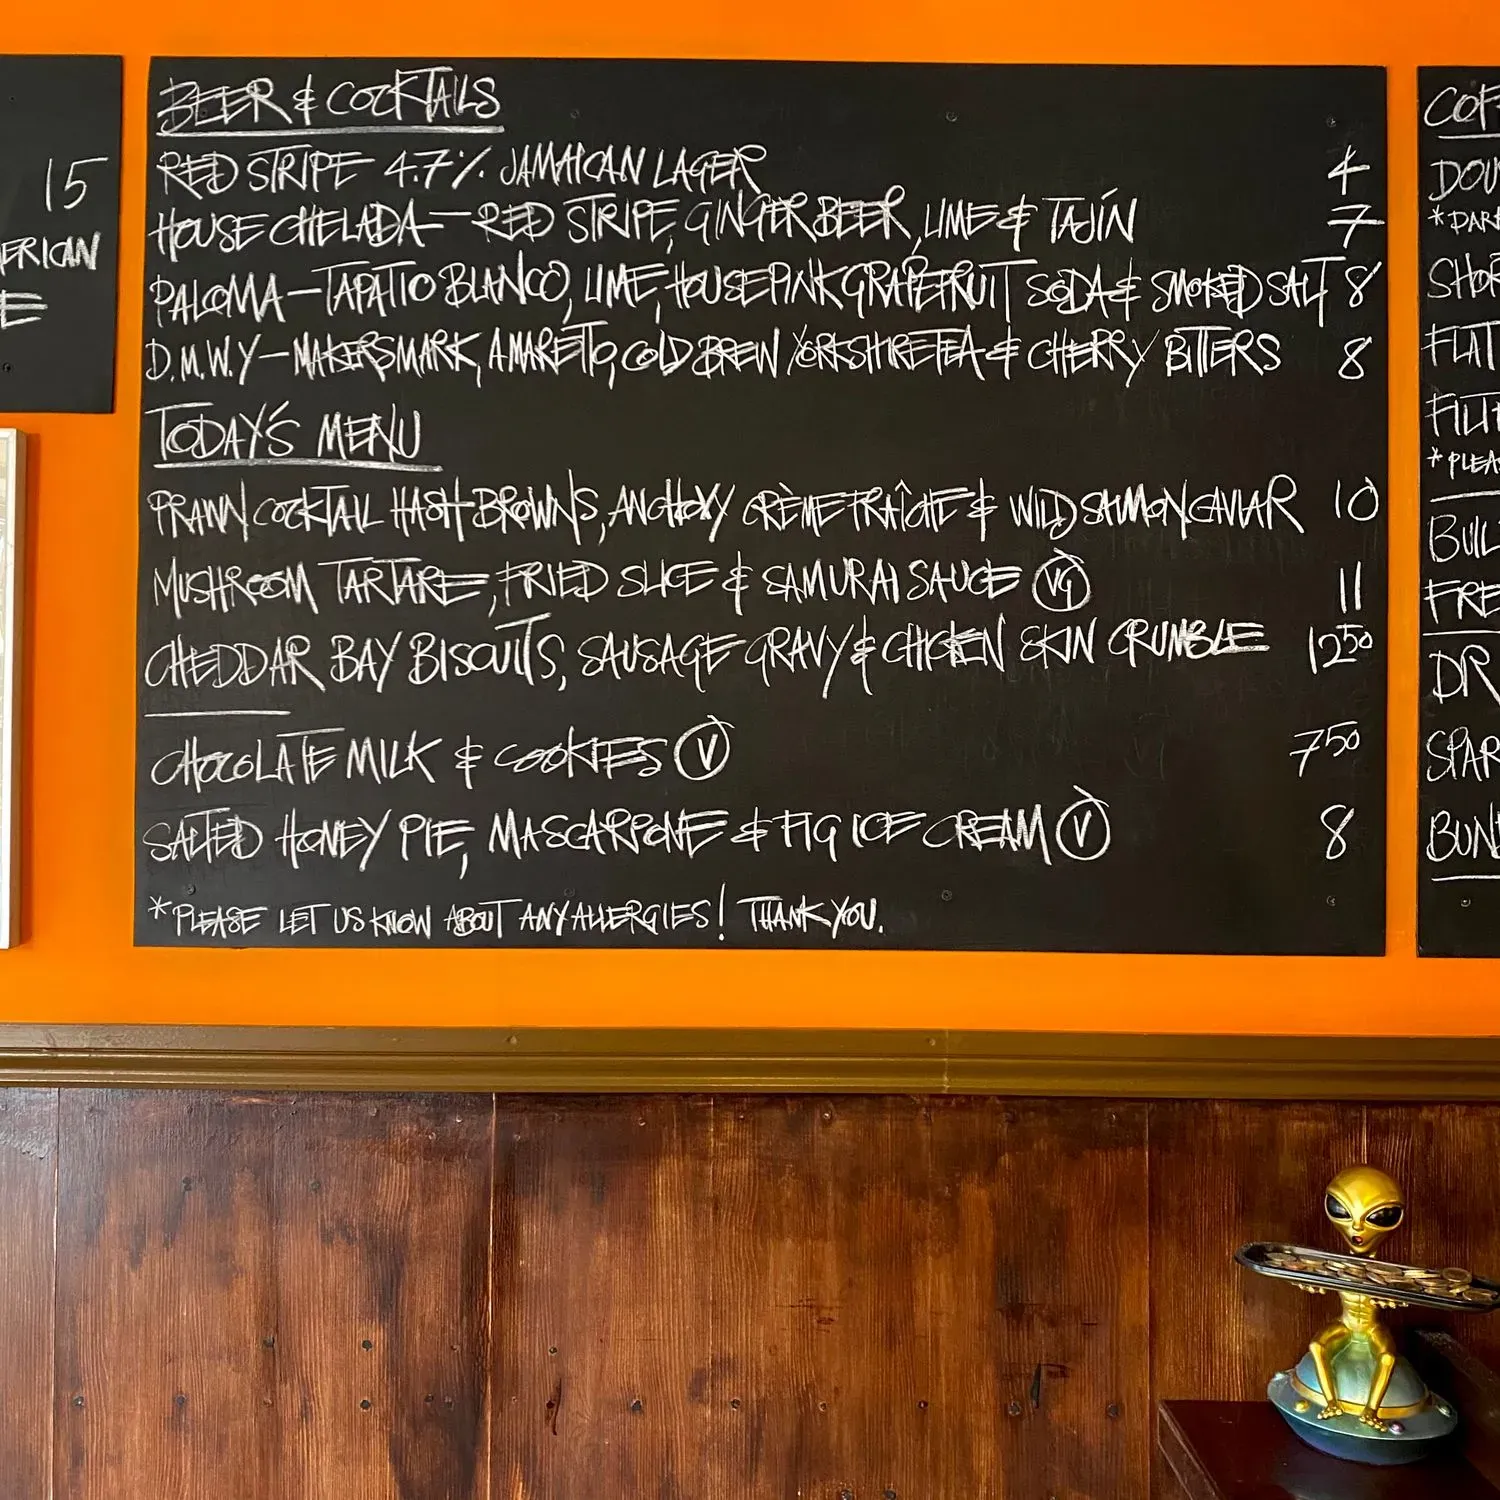 15
ERICAN
E
BEER & COCKTAILS
RED STRIPE 4.7% JAMAICAN LAGER 4
HOUSE CHELADA — RED STRIPE, GINGER BEER, LIME & TAJÍN 7
PALOMA — TAPATIO BLANCO, LIME, HOUSE PINK GRAPEFRUIT SODA & SMOKED SALT 8
D.M.W.Y — MAKERS MARK, AMARETTO, COLD BREW YORKSHIRE TEA & CHERRY BITTERS 8
TODAY'S MENU
PRAWN COCKTAIL HASH BROWNS, ANCHOVY CRÈME FRAÎCHE & WILD SALMON CAVIAR 10
MUSHROOM TARTARE, FRIED SLICE & SAMURAI SAUCE VG 11
CHEDDAR BAY BISCUITS, SAUSAGE GRAVY & CHICKEN SKIN CRUMBLE 12 50
CHOCOLATE MILK & COOKIES V 7 50
SALTED HONEY PIE, MASCARPONE & FIG ICE CREAM V 8
*PLEASE LET US KNOW ABOUT ANY ALLERGIES! THANK YOU.
COF
DOU
*DAR
SHOR
FLAT
FILT
*PLEA
BUIL
FRE
DR
SPAR
BUN